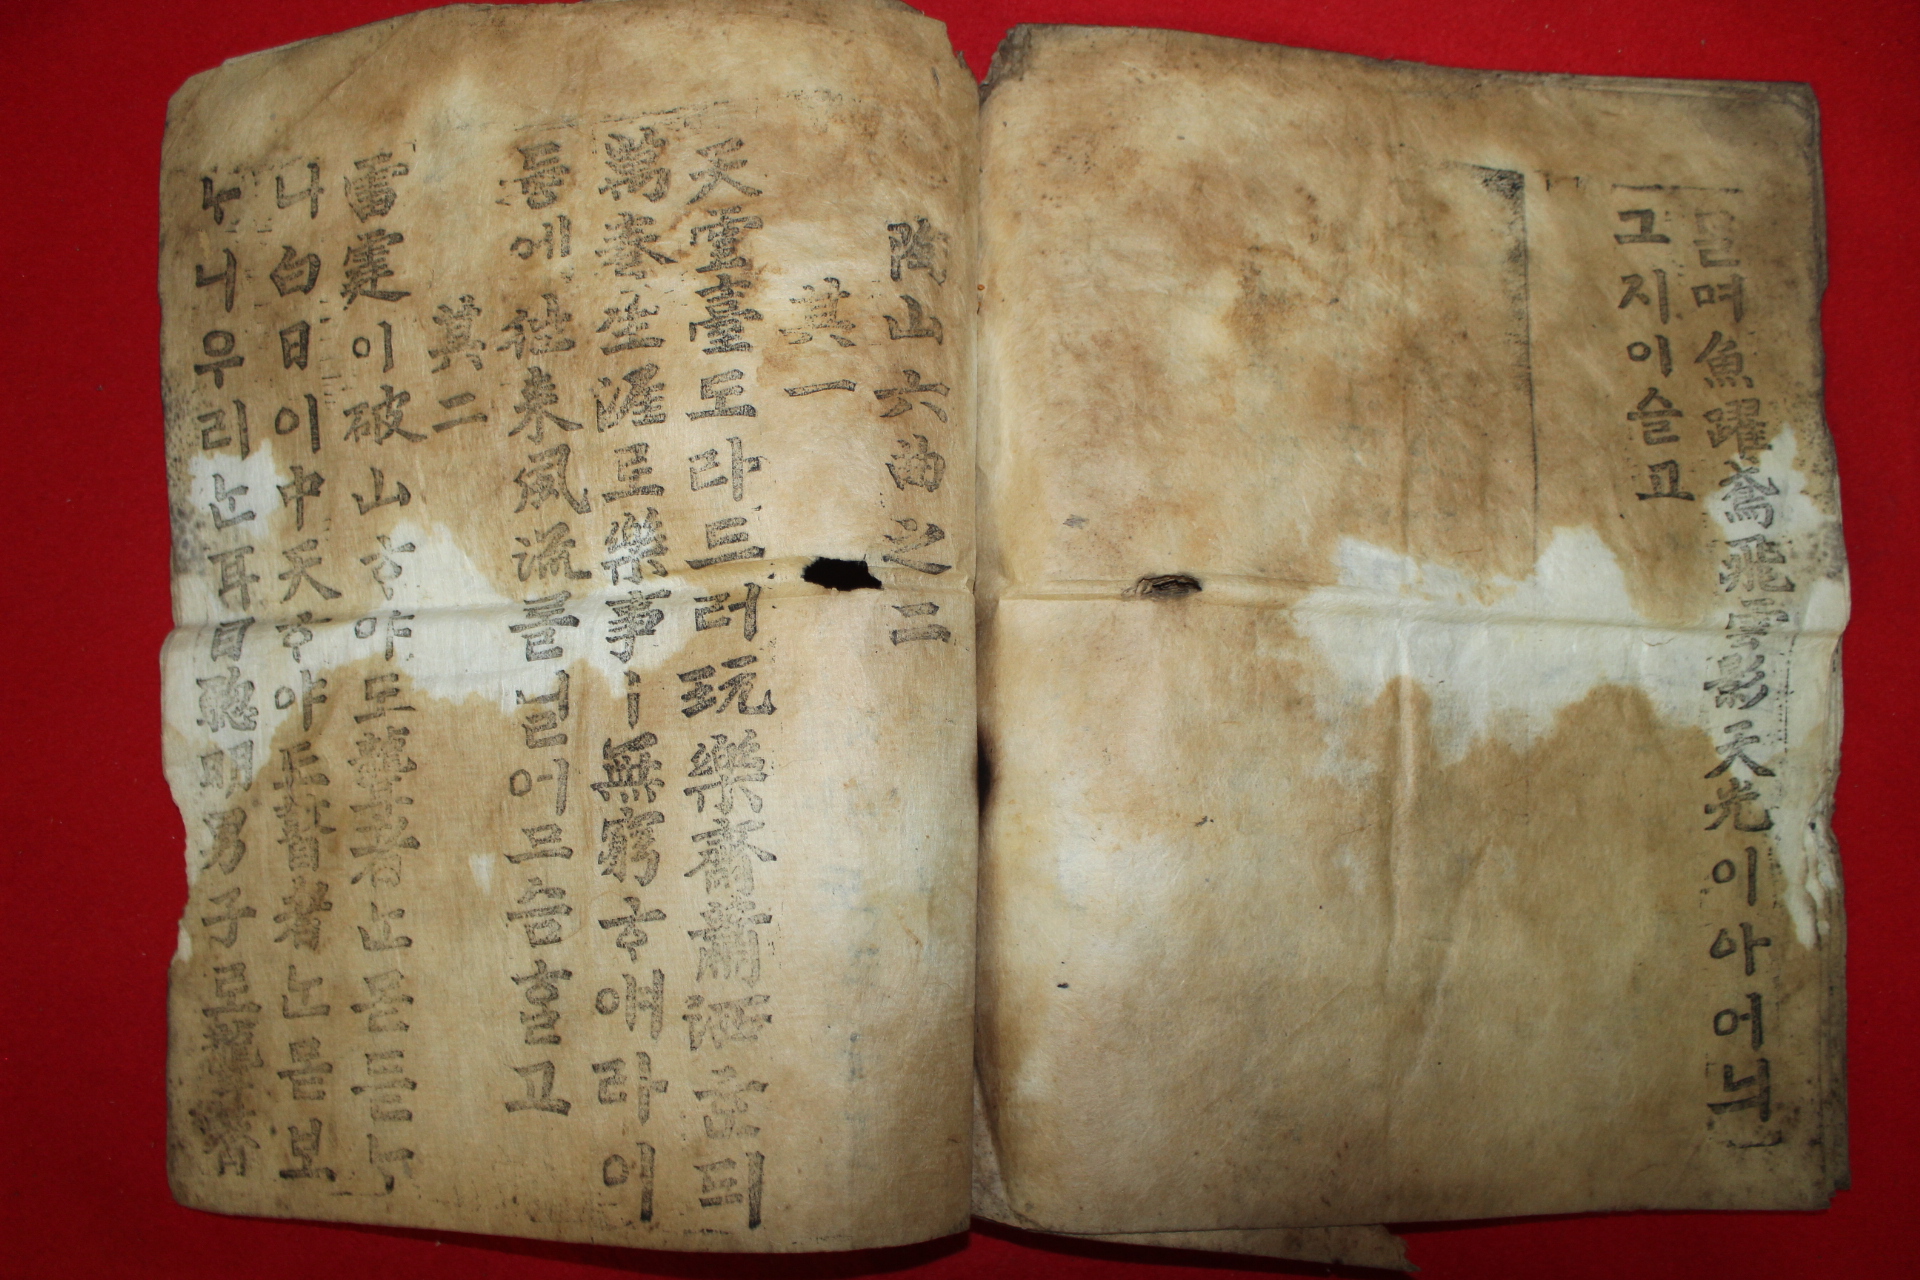 믈며魚躍鳶飛雲影天光이아어늬
그지이슬고
陶山六曲之二
其一
天雲臺도라드러玩樂齋蕭洒ᄒᆞᆫᄃᆡ
萬卷生涯로樂事ㅣ無窮ᄒᆞ얘라이
듕에往來風流를닐어므슴ᄒᆞᆯ고
其二
雷霆이破山ᄒᆞ야도聾者ᄂᆞᆫ몯듣ᄂᆞ
니白日이中天ᄒᆞ야도瞽者ᄂᆞᆫ몯보
ᄂᆞ니우리ᄂᆞᆫ耳目聰明男子로聾瞽